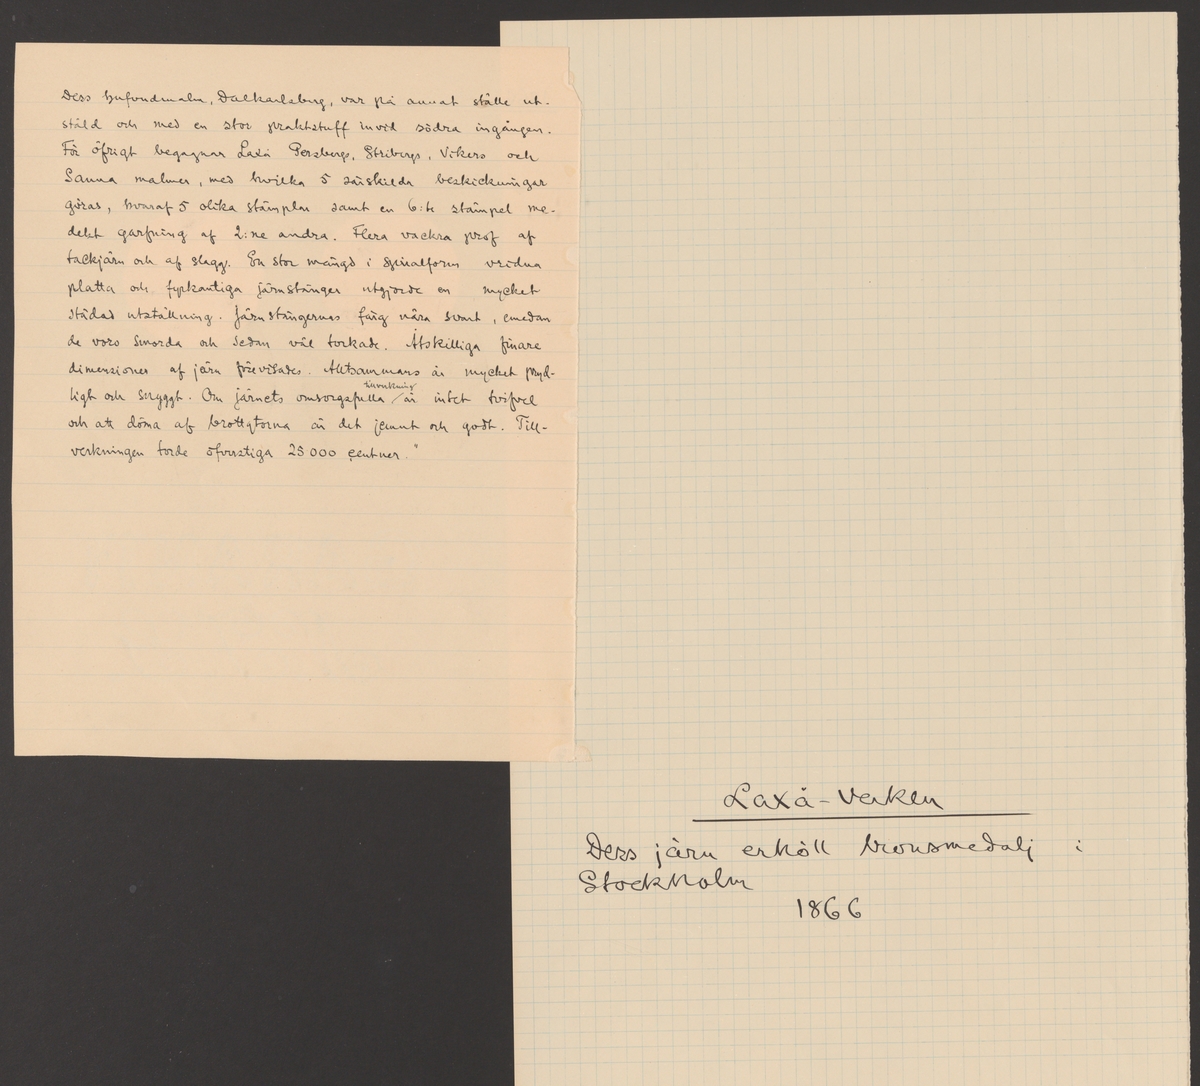 Dess hufvudmalm, Dalkarlsberg, var på annat ställe ut-
stäld och med en stor praktstuff invid södra ingången.
För öfrigt begagnar Laxå Persbergs, Stribergs, Vikers och
Sanna malmer, med hvilka 5 särskilda beskickningar
göras, hvaraf 5 olika stämplar samt en 6:te stämpel me-
delst garfning af 2:ne andra. Flera vackra prof af
tackjärn och af slagg. En stor mängd i spiralform vridna
platta och fyrkantiga järnstänger utgjorde en mycket
städad utställning. Järnstängernas färg nära svart, emedan
de voro smorda och sedan väl torkade. Åtskilliga finare
dimensioner af järn förevisades. Altsammans är mycket pryd-
ligt och snyggt. Om järnets omsorgsfulla tillverkning är intet tvifvel
och att döma af brottytorna är det jemnt och godt. Till-
verkningen torde öfverstiga 25 000 centner."
Laxå-Verken
Dess järn erhöll bronsmedalj i
Stockholm
1866